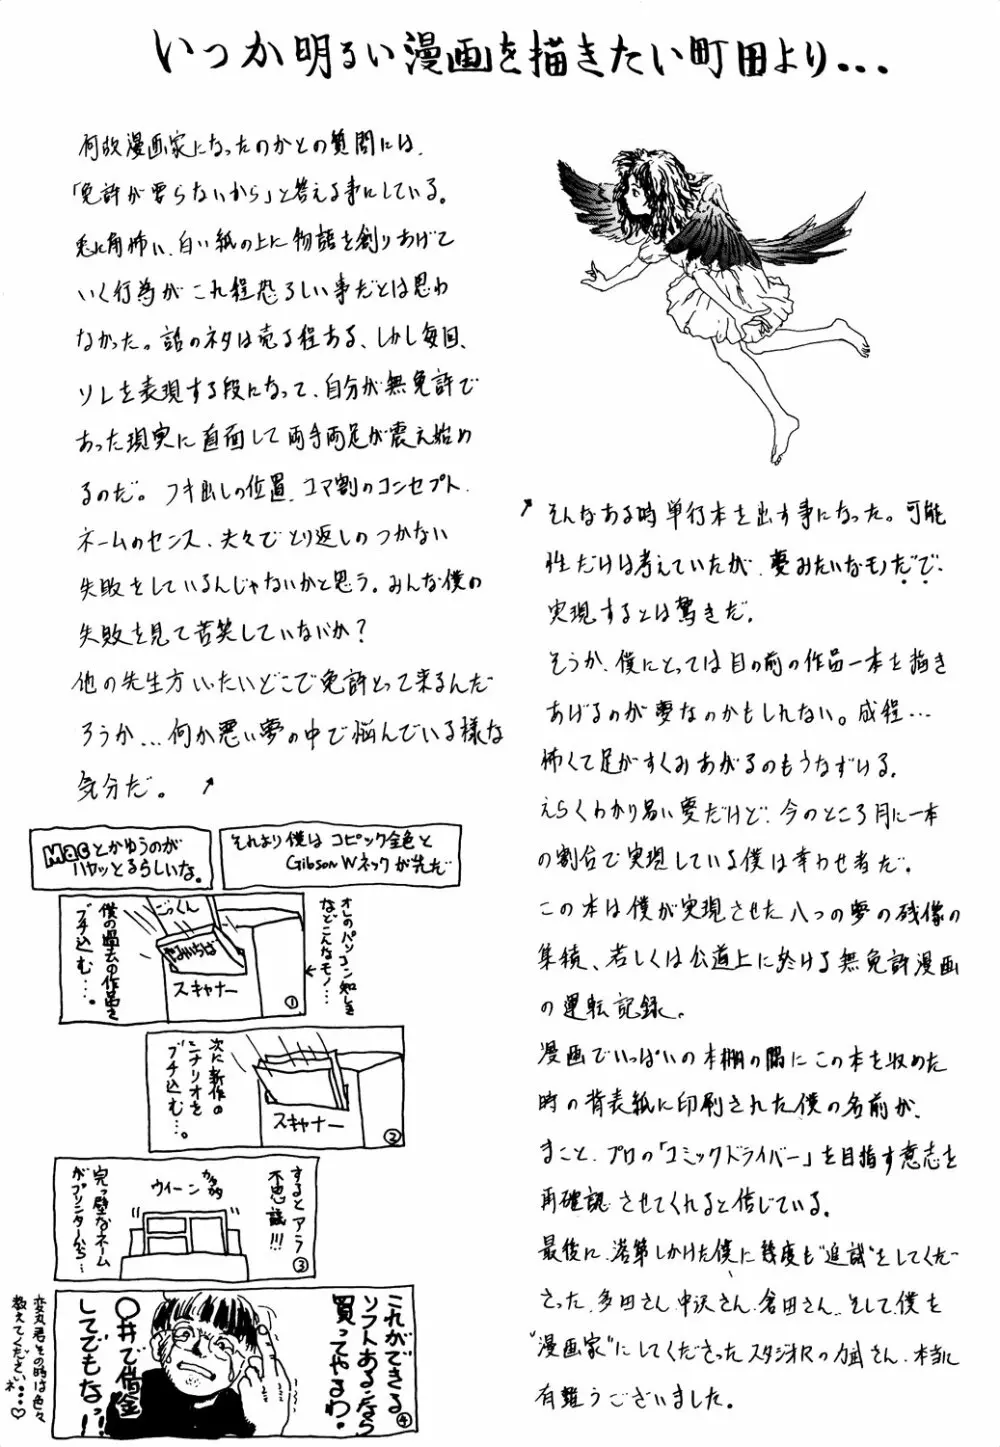 いつか明るい漫画を描きたい町田より...
何故漫画家になったのかとの質問には、
「免許が要らないから」と答える事にしている。
兎に角怖い、白い紙の上に物語を創りあげて
いく行為がこれ程恐ろしい事だとは思わ
なかった。話のネタは売る程ある、しかし毎回、
ソレを表現する段になって、自分が無免許で
あった現実に直面して両手両足が震え始め
るのだ。フキ出しの位置、コマ割のコンセプト、
ネームのセンス、夫々でとり返しのつかない
失敗をしているんじゃないかと思う。みんな僕の
失敗を見て苦笑していないか?
他の先生方いったいどこで免許とって来るんだ
ろうか...何か悪い夢の中で悩んでいる様な
気分だ。
そんなある時単行本を出す事になった。可能
性だけは考えていたが、夢みたいなモノだで、
実現するとは驚きだ。
そうか、僕にとっては目の前の作品一本を描き
あげるのが夢なのかもしれない。成程...
怖くて足がすくみあがるのもうなずける。
えらくわかり易い夢だけど、今のところ月に一本
の割合で実現している僕は幸わせ者だ。
この本は僕が実現させた八つの夢の残像の
集積、若しくは公道上に於ける無免許漫画
の運転記録。
漫画でいっぱいの本棚の隅にこの本を収めた
時の背表紙に印刷された僕の名前が、
まこと、プロの「コミックドライバー」を目指す意志を
再確認させてくれると信じている。
最後に、落第しかけた僕に幾度も"追試"をしてくだ
さった、多田さん、中沢さん、倉田さん、そして僕を
"漫画家"にしてくださったスタジオRの力武さん、本当に
有難うございました。
Macとかゆうのが
ハヤッとるらしいな。
それより僕はコピック全色と
GibsonWネックが先だ
オレのパソコン知しき
などこんなモノ...
僕の過去の作品を
ブチ込む...。
ごっくん
やみいちば
スキャナー
①
次に新作の
シナリオを
ブチ込む...。
スキャナー
②
するとアラ
不思議!!!
ウィーン
カタカタ
完っ璧なネーム
がプリンターから...
③
これができる
ソフトあるなら
買ってやるわ。
〇井で借金
してでもなっ!!
④
変丸君その時は色々
教えてくださいネ...♡